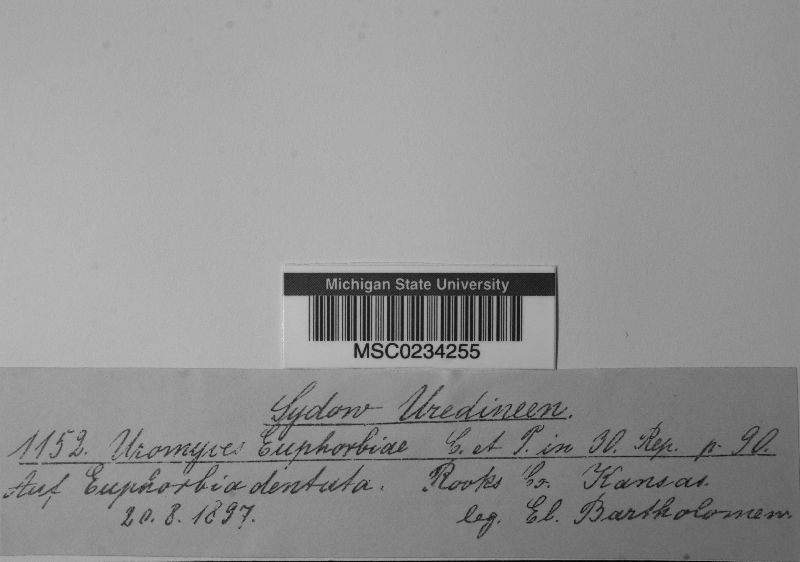 Michigan State University
MSC0234255
Sydow Uredineen.
1152. Uromyces Euphorbiae C. et P. in 30. Rep. p. 90.
Auf Euphorbia dentata. Rooks Co. Kansas.
20. 8. 1897. leg. El. Bartholomew